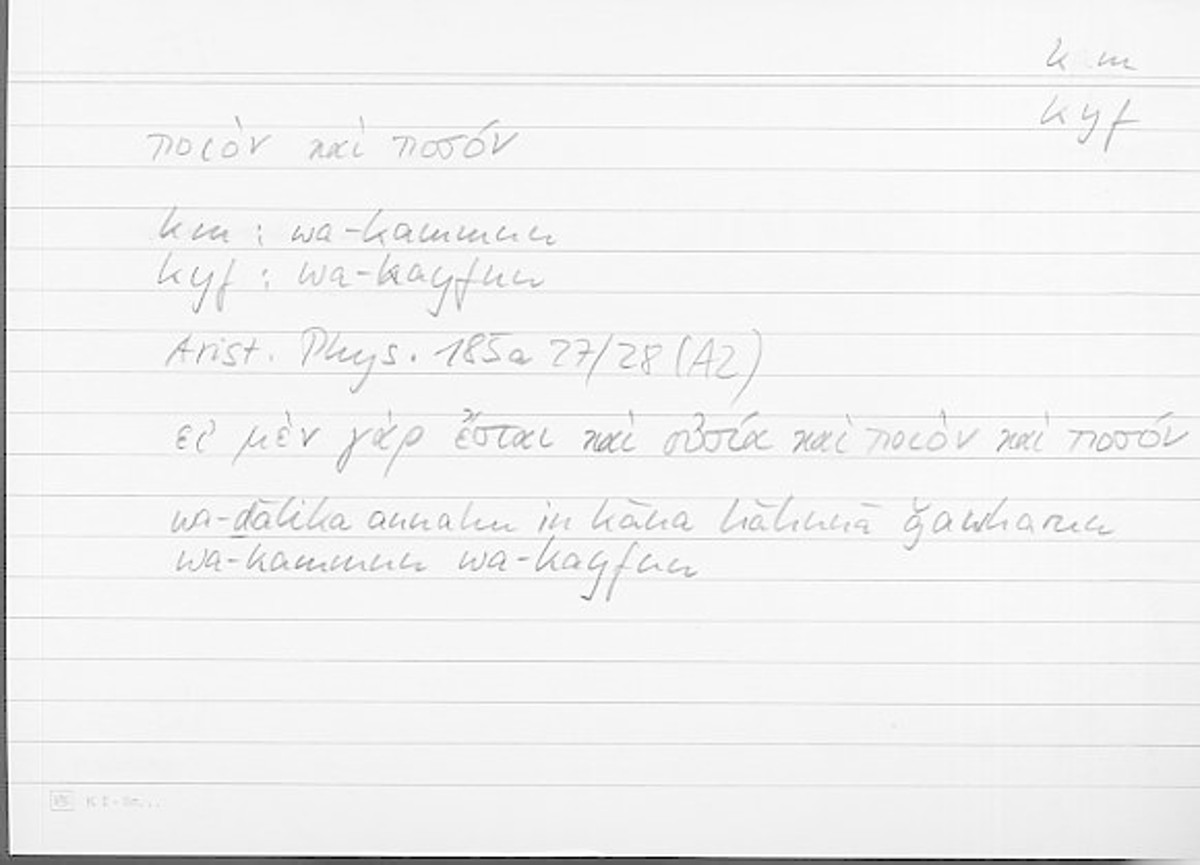 k m
kyf
ποιὸν καὶ ποσόν
km : wa-kammun
kyf : wa-kayfun
Arist. Phys. 185a 27/28 (A2)
εἰ μὲν γὰρ ἔσται καὶ οὐσία καὶ ποιὸν καὶ ποσόν
wa-ḏālika annahu in kāna hāhunā ǧawharun
wa-kammun wa-kayfun